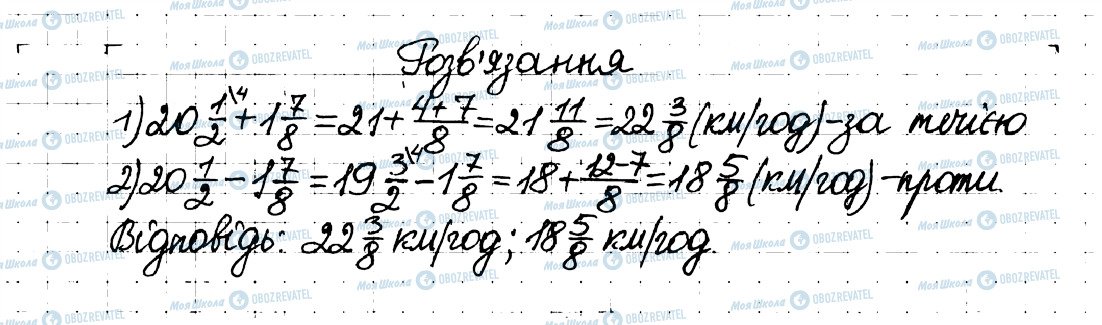 Розв'язання
1) 20 1/2 \4 + 1 7/8 = 21 + (4+7)/8 = 21 11/8 = 22 3/8 (км/год) - за течією
2) 20 1/2 - 1 7/8 = 19 3/2 \4 - 1 7/8 = 18 + (12-7)/8 = 18 5/8 (км/год) - проти.
Відповідь: 22 3/8 км/год; 18 5/8 км/год.